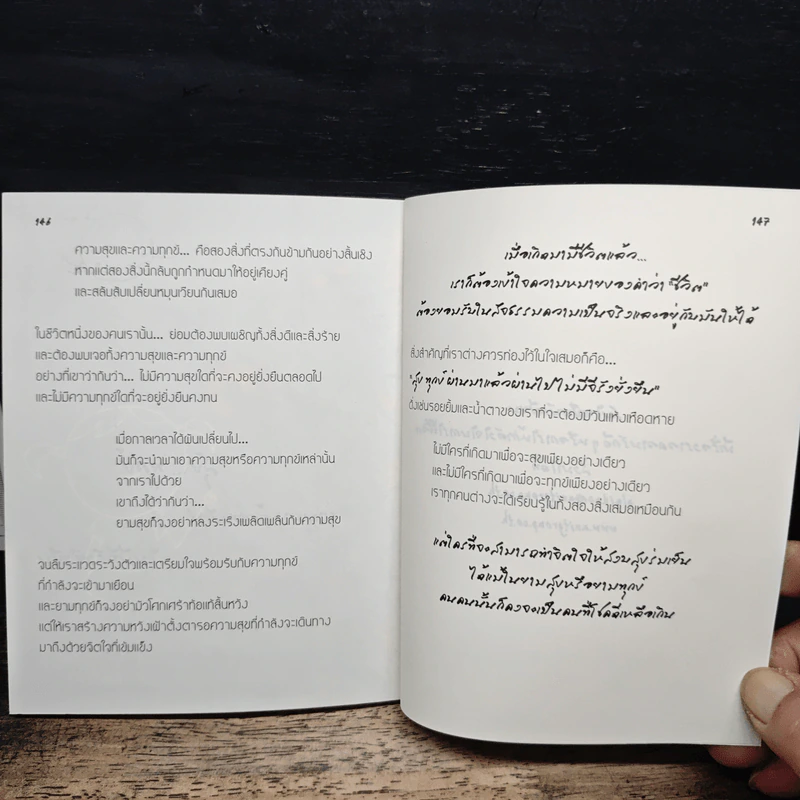 146
ความสุขและความทุกข์... คือสองสิ่งที่ตรงกันข้ามกันอย่างสิ้นเชิง
หากแต่สองสิ่งนี้กลับถูกกำหนดมาให้อยู่เคียงคู่
และสลับสับเปลี่ยนหมุนเวียนกันเสมอ
ในชีวิตหนึ่งของคนเรานั้น... ย่อมต้องพบเผชิญทั้งสิ่งดีและสิ่งร้าย
และต้องพบเจอทั้งความสุขและความทุกข์
อย่างที่เขาว่ากันว่า... ไม่มีความสุขใดที่จะคงอยู่ยั่งยืนตลอดไป
และไม่มีความทุกข์ใดที่จะอยู่ยั่งยืนคงทน
เมื่อกาลเวลาได้ผันเปลี่ยนไป...
มันก็จะนำพาเอาความสุขหรือความทุกข์เหล่านั้น
จากเราไปด้วย
เขาถึงได้ว่ากันว่า...
ยามสุขก็จงอย่าหลงระเริงเพลิดเพลินกับความสุข
จนลืมระแวดระวังตัวและเตรียมใจพร้อมรับกับความทุกข์
ที่กำลังจะเข้ามาเยือน
และยามทุกข์ก็จงอย่ามัวโศกเศร้าท้อแท้สิ้นหวัง
แต่ให้เราสร้างความหวังเฝ้าตั้งตารอความสุขที่กำลังจะเดินทาง
มาถึงด้วยจิตใจที่เข้มแข็ง
147
เมื่อเกิดมามีชีวิตแล้ว...
เราก็ต้องเข้าใจความหมายของคำว่า "ชีวิต"
ต้องยอมรับในสัจธรรมความเป็นจริงและอยู่กับมันให้ได้
สิ่งสำคัญที่เราต่างควรท่องไว้ในใจเสมอก็คือ...
"สุข ทุกข์ ผ่านมาแล้วผ่านไป ไม่มีจีรังยั่งยืน"
ดั่งเช่นรอยยิ้มและน้ำตาของเราที่จะต้องมีวันแห้งเหือดหาย
ไม่มีใครที่เกิดมาเพื่อจะสุขเพียงอย่างเดียว
และไม่มีใครที่เกิดมาเพื่อจะทุกข์เพียงอย่างเดียว
เราทุกคนต่างจะได้เรียนรู้ในทั้งสองสิ่งเสมอเหมือนกัน
แต่ใครที่จะสามารถทำจิตใจให้สงบสุขร่มเย็น
ได้แม้ในยามสุขหรือยามทุกข์
คนคนนั้นก็คงจะเป็นคนที่โชคดีเหลือเกิน